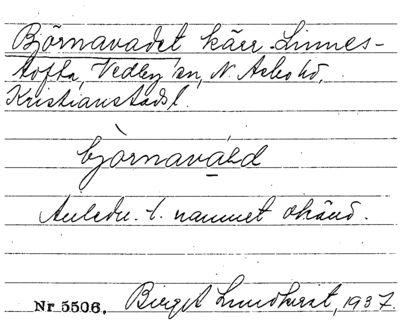 Björnavadet kärr Linnes-
tofta, Vedby sn, N. Asbo hd,
Kristianstads l.
björnavád
Anledn. t. namnet okänd.
Nr 5506. Birgit Lundkvist, 1937.